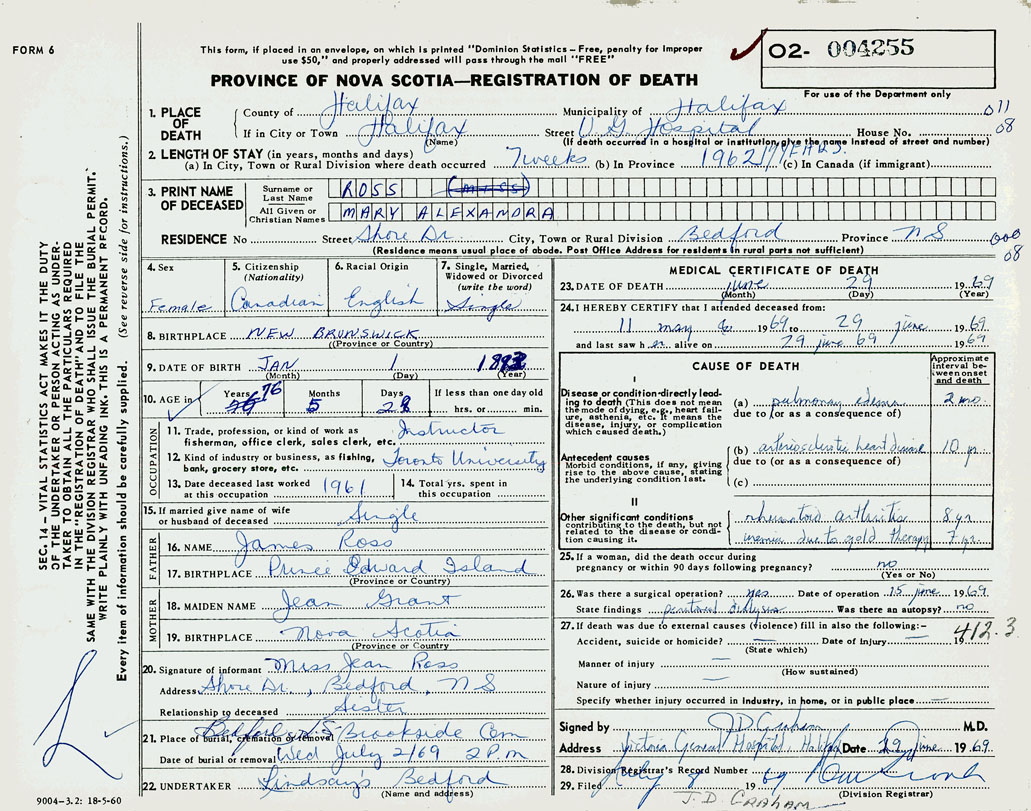 FORM 6
This form, if placed in an envelope, on which is printed "Dominion Statistics – Free, penalty for improper
use $50," and properly addressed will pass through the mail "FREE"
O2- 004255
For use of the Department only
PROVINCE OF NOVA SCOTIA—REGISTRATION OF DEATH
SEC. 14 – VITAL STATISTICS ACT MAKES IT THE DUTY
OF THE UNDERTAKER OR PERSON ACTING AS UNDER-
TAKER TO OBTAIN ALL THE PARTICULARS REQUIRED
IN THE "REGISTRATION OF DEATH" AND TO FILE THE
SAME WITH THE DIVISION REGISTRAR WHO SHALL ISSUE THE BURIAL PERMIT.
WRITE PLAINLY WITH UNFADING INK. THIS IS A PERMANENT RECORD.
Every item of information should be carefully supplied. (See reverse side for instructions.)
1. PLACE OF DEATH
County of Halifax Municipality of Halifax 011
If in City or Town Halifax Street V G Hospital House No. 08
(Name) (If death occurred in a hospital or institution, give the name instead of street and number)
2. LENGTH OF STAY (in years, months and days)
(a) In City, Town or Rural Division where death occurred 7 weeks (b) In Province 1962/7 YEARS. (c) In Canada (if immigrant)
3. PRINT NAME OF DECEASED
Surname or Last Name ROSS (MISS)
All Given or Christian Names MARY ALEXANDRA
RESIDENCE No Street Shore Dr. City, Town or Rural Division Bedford Province NS 000
08
(Residence means usual place of abode. Post Office Address for residents in rural parts not sufficient)
4. Sex Female
5. Citizenship (Nationality) Canadian
6. Racial Origin English
7. Single, Married, Widowed or Divorced (write the word) Single
8. BIRTHPLACE NEW BRUNSWICK
(Province or Country)
9. DATE OF BIRTH JAN 1 1893
(Month) (Day) (Year)
10. AGE in Years 76 Months 5 Days 28 If less than one day old
hrs. or min.
OCCUPATION
11. Trade, profession, or kind of work as Instructor
fisherman, office clerk, sales clerk, etc.
12. Kind of industry or business, as fishing, Toronto University
bank, grocery store, etc.
13. Date deceased last worked at this occupation 1961
14. Total yrs. spent in this occupation
15. If married give name of wife or husband of deceased Single
FATHER
16. NAME James Ross
17. BIRTHPLACE Prince Edward Island
(Province or Country)
MOTHER
18. MAIDEN NAME Jean Grant
19. BIRTHPLACE Nova Scotia
(Province or Country
20. Signature of informant Miss Jean Ross
Address Shore Dr., Bedford, NS
Relationship to deceased Sister
21. Place of burial, cremation or removal Bedford N.S Brookside Cem
Date of burial or removal Wed July 2/69 2 P.m
22. UNDERTAKER Lindsay's Bedford
(Name and address)
9004–3.2: 18-5-60
MEDICAL CERTIFICATE OF DEATH
23. DATE OF DEATH June 29 1969
(Month) (Day) (Year)
24. I HEREBY CERTIFY that I attended deceased from:
11 may 1969 to 29 june 1969
and last saw her alive on 29 june 69 1969
CAUSE OF DEATH
Approximate interval between onset and death
I
Disease or condition directly leading to death (This does not mean the mode of dying, e.g., heart failure, asthenia, etc. It means the disease, injury, or complication which caused death.)
(a) pulmonary edema 2 mo.
due to (or as a consequence of)
Antecedent causes
Morbid conditions, if any, giving rise to the above cause, stating the underlying condition last.
(b) arteriosclerotic heart disease 10 yr
due to (or as a consequence of)
(c)
II
Other significant conditions
contributing to the death, but not related to the disease or condition causing it.
rheumatoid arthritis 8 yr.
uremia due to gold therapy 7 yr.
25. If a woman, did the death occur during
pregnancy or within 90 days following pregnancy? no
(Yes or No)
26. Was there a surgical operation? yes Date of operation 15 june 1969
State findings peritoneal dialysis Was there an autopsy? no
27. If death was due to external causes (violence) fill in also the following:— 412.3
Accident, suicide or homicide? — Date of injury — 19
(State which)
Manner of injury —
(How sustained)
Nature of injury —
Specify whether injury occurred in Industry, in home, or in public place —
Signed by J D Graham M.D.
Address Victoria General Hospital, Halifax Date 29 June 1969
28. Division Registrar's Record Number
29. Filed July 19 69
(Division Registrar)
J. D. GRAHAM